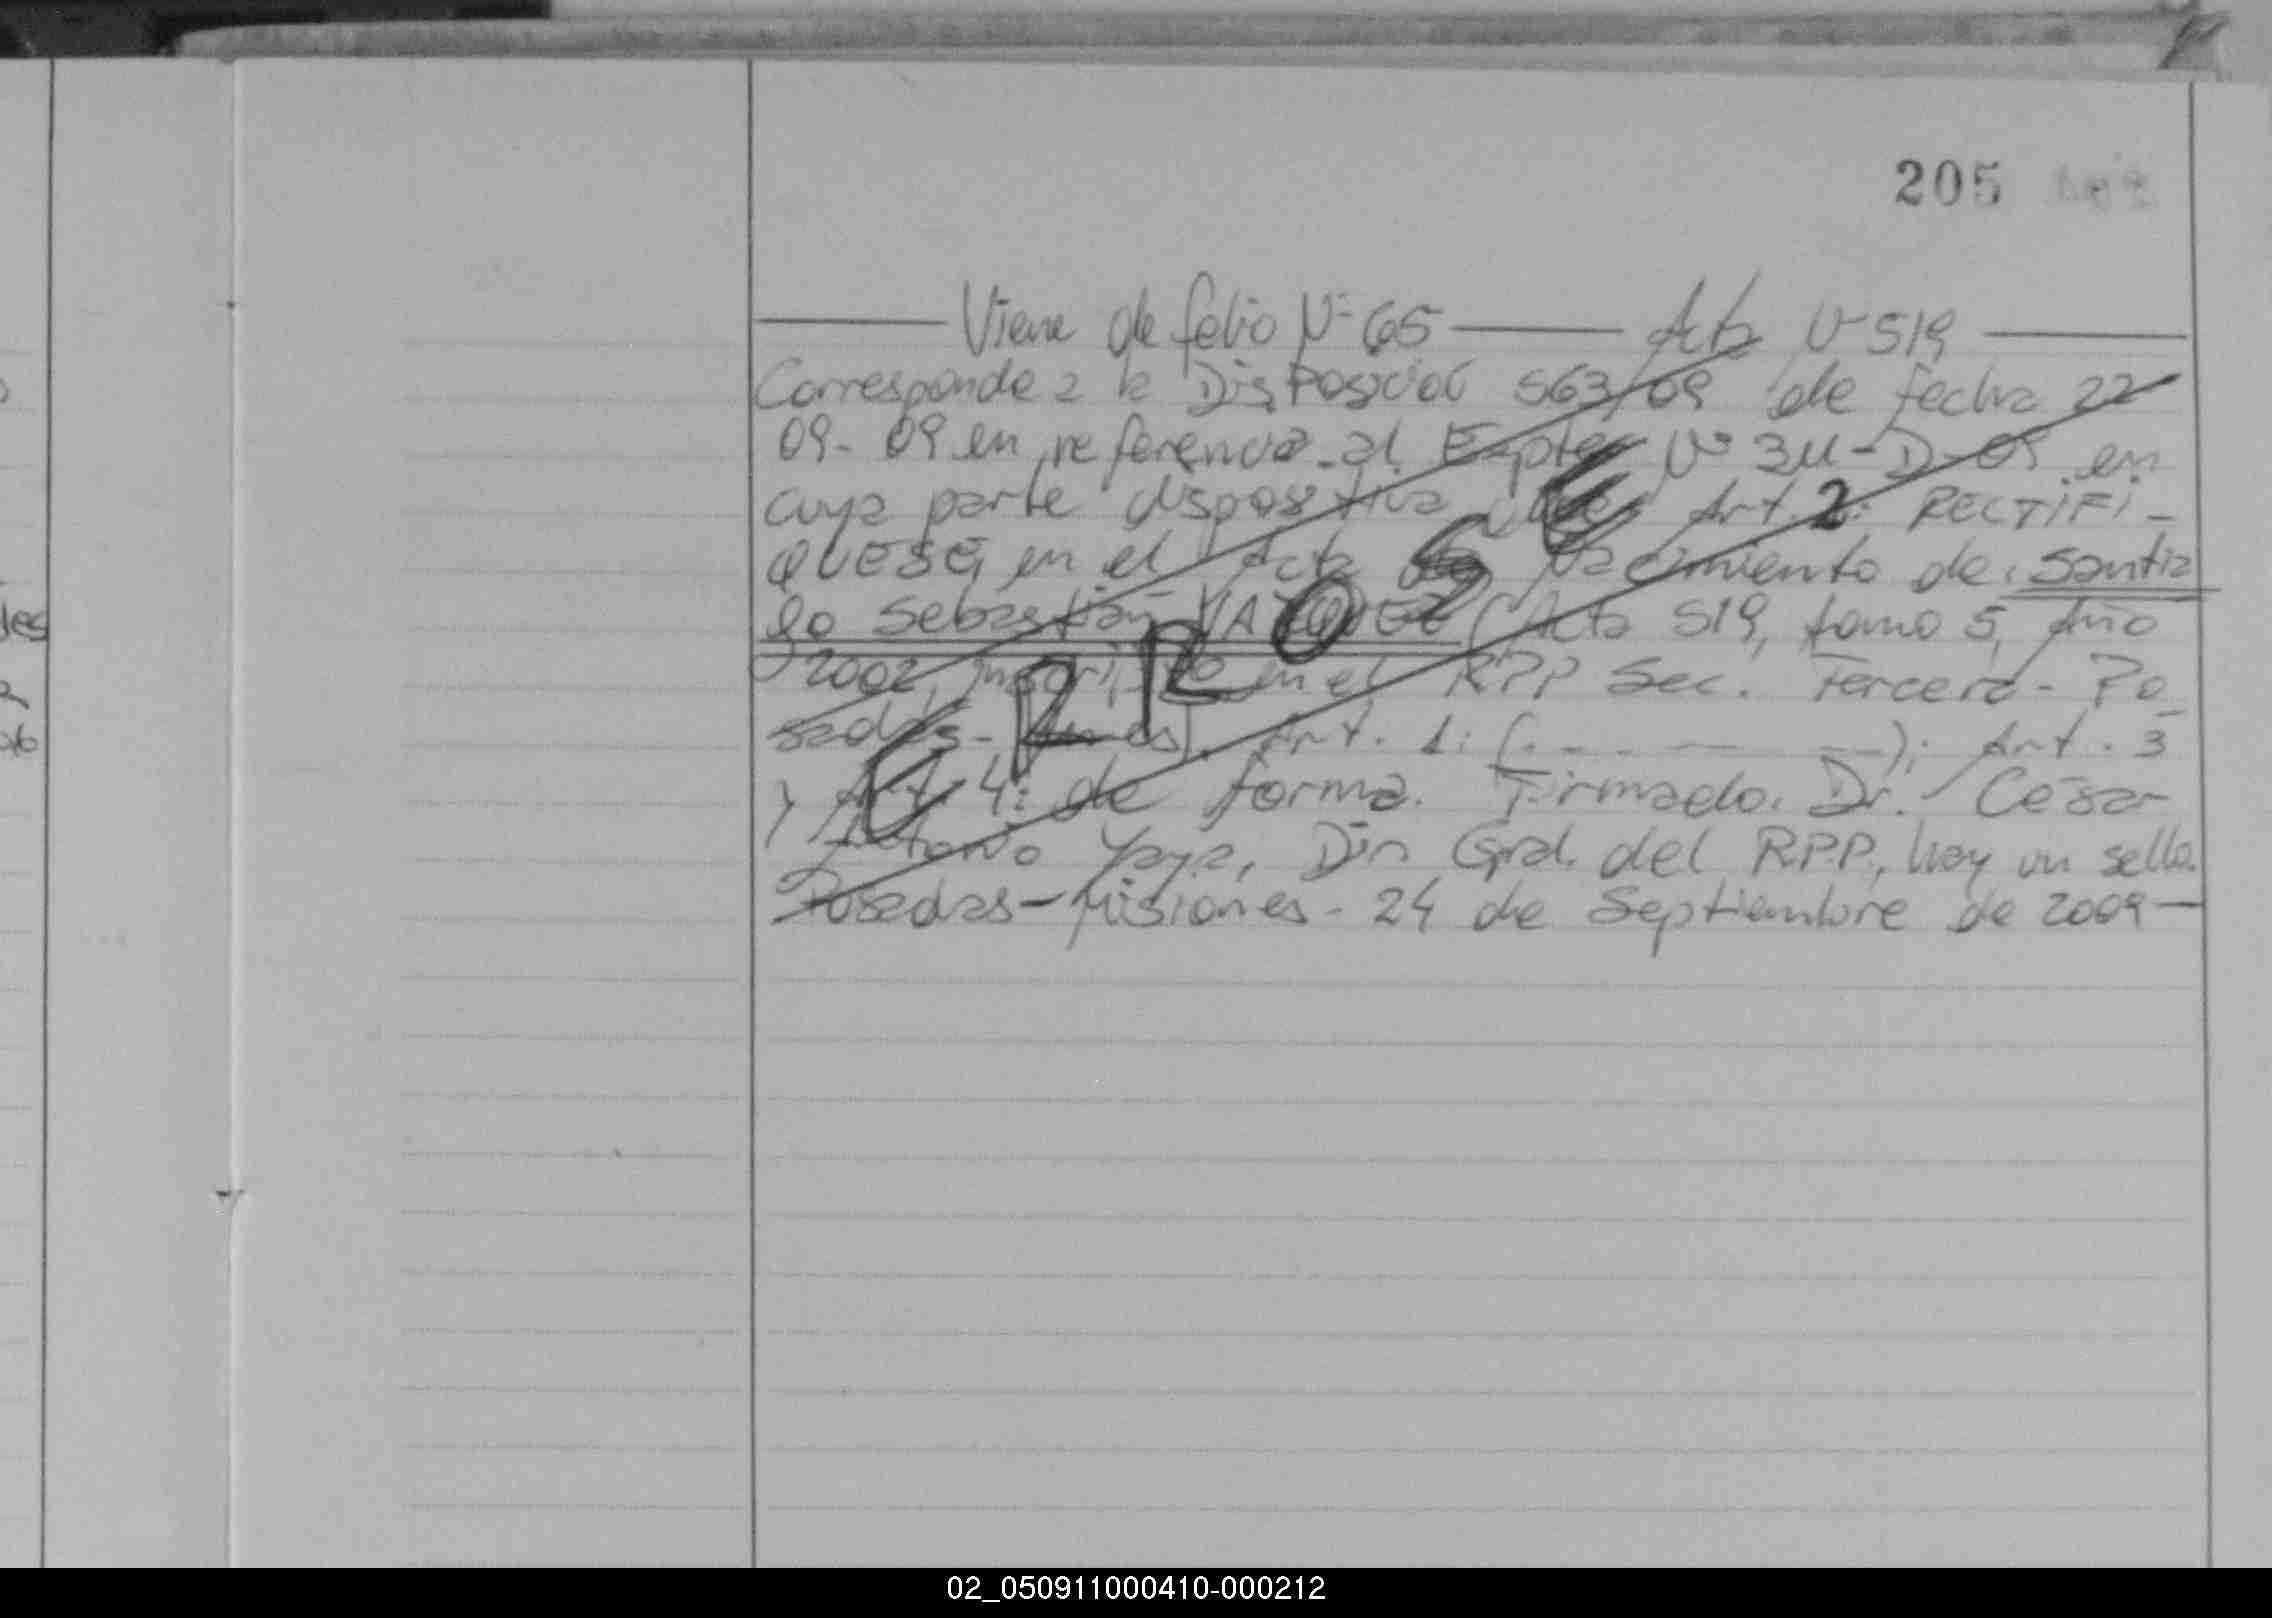 205
Viene de folio Nº 65 — Acta Nº 519
Corresponde a la Disposición 563/09 de fecha 22
09-09 en referencia al Expte Nº 311-D-09 en
cuya parte dispositiva dice: Art. 2: RECTIFI-
QUESE, en el Acta de Nacimiento de: Santia
go Sebastián VAZQUEZ (Acta 519, tomo 5, Año
2002, inscripto en el RPP Sec. Tercera - Po
sadas - Mnes). Art. 1: (. - - - — —); Art. 3
y Art. 4: de forma. Firmado. Dr. César
Antonio Yaya, Dir Gral. del R.P.P., hay un sello.
Posadas - Misiones - 24 de Septiembre de 2009 —
ERROSE
les
02_050911000410-000212